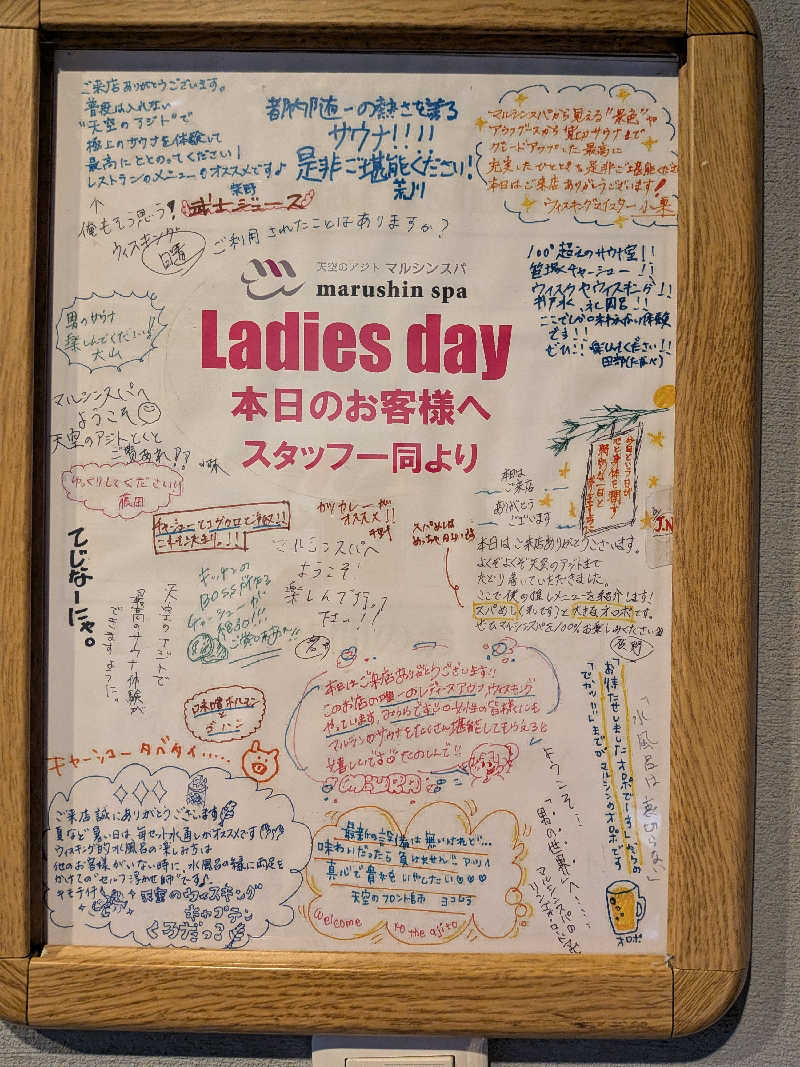 ご来店ありがとうございます。
普段は入れない
"天空のアジト"で
極上のサウナを体験して
最高にととのってください!
レストランのメニューもオススメです♪
↑
俺もそう思う!
都内随一の熱さを誇る
サウナ!!!!
是非ご堪能ください!
荒川
武士ジュース
ご利用されたことはありますか?
マルシンスパから見える"景色"や
充実したひとときを是非ご堪能くださ
本日はご来店ありがとうございます!
100°超えのサウナ室!!
ウィスクやウィスキング!!
ここでしか味わえない体験
です!!
ぜひ!!楽しんでください!!
田部(たなべ)
天空のアジト マルシンスパ
marushin spa
Ladies day
本日のお客様へ
スタッフ一同より
男のサウナ
楽しんでください!!
大山
マルシンスパへ
ようこそ
天空のアジトとくと
ご覧あれ??
ゆっくりしてください!!
藤田
てじなーにゃ。
天空のアジトで
最高のサウナ体験が
できますように。
カツカレーが
オススメ!!
マルシンスパへ
ようこそ!
楽しんで行って
下さい!!
キッチンの
BOSSが作る
チャーシューが
スパめしは
めっちゃ白いです
本日は
ご来店
ありがとう
ございます
by J.N
本日はご来店ありがとうございます。
よくぞよくぞ天空のアジトまで
たどり着いていただきました。
ここで僕の推しメニューを紹介します!
ぜひマルシンスパを100%お楽しみください
味噌ホルモン
と
ゴハン
チャーシュー タベタイ.....
本日はご来店ありがとうございます!!
このお店の唯一のレディースアウフ、ウィスキング
やっています、みうらです。女性の皆様にも
マルシンのサウナをたくさん堪能してもらえると
嬉しいです。たのしんで!!
MIURA
「お待たせしましたオロポでーす」からの
「でかッ!!」までがマルシンのオロポです
「水風呂は裏切らない」
オロポ
ご来店誠にありがとうございます
夏など暑い日は毎セット水通しがオススメです
ウィスキング的水風呂の楽しみ方は
他のお客様がいない時に、水風呂の縁に両足を
かけての"セルフ浮かせ"です
キモチイイ
天空のウィスキング
キャプテン
くろだっこ
最新の設備は無いけれど…
味わいだったら負けません!!
真心で貴女をいやしたい♡♡♡
天空のフロント部 ヨコしろ
Welcome to the ajito
ようこそ!
"男の世界"へ……
マルシンスパの